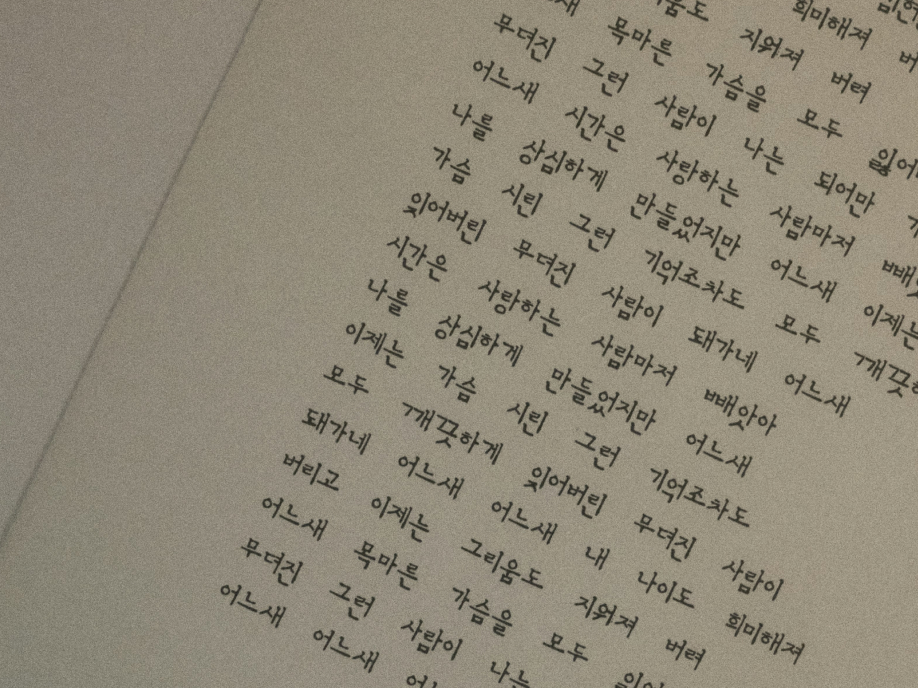 희미해져
지워져 버려
목마른 가슴을 모두 잃어
무뎌진 그런 사람이 나는 되어만
어느새 시간은 사랑하는 사람마저
나를 상심하게 만들었지만 어느새 이제는
가슴 시린 그런 기억조차도 모두 깨끗
잊어버린 무뎌진 사람이 돼가네 어느새
시간은 사랑하는 사람마저 빼앗아
나를 상심하게 만들었지만 어느새
이제는 가슴 시린 그런 기억조차도
모두 깨끗하게 잊어버린 무뎌진 사람이
돼가네 어느새 어느새 내 나이도 희미해져
버리고 이제는 그리움도 지워져 버려
어느새 목마른 가슴을 모두
무뎌진 그런 사람이 나는
어느새 어느새